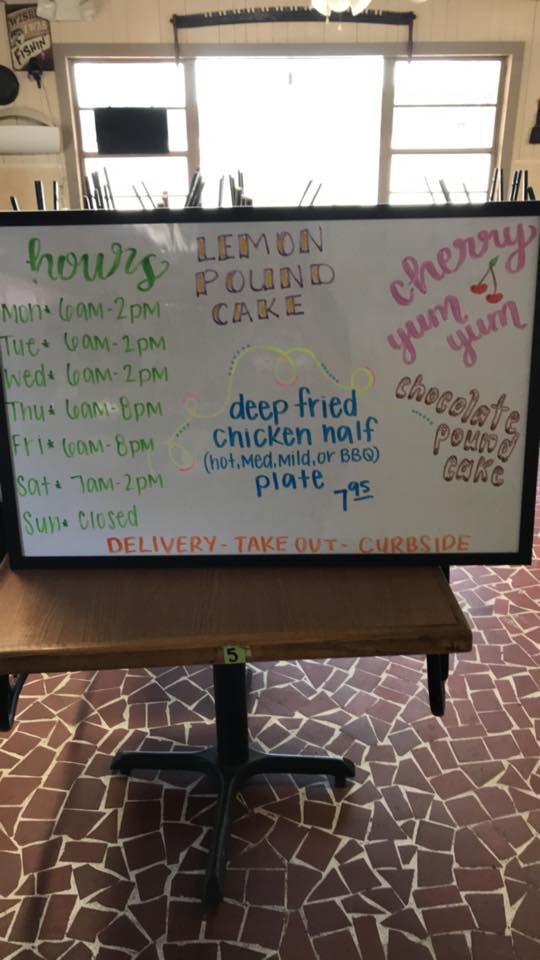 FISHIN
hours
Mon: 6am-2pm
Tue: 6am-2pm
Wed: 6am-2pm
Thu: 6am-8pm
Fri: 6am-8pm
Sat: 7am-2pm
Sun: Closed
LEMON
POUND
CAKE
deep fried
chicken half
(hot, Med, Mild, or BBQ)
plate
7.95
cherry
yum
yum
chocolate
pound
cake
DELIVERY - TAKE OUT - CURBSIDE
5